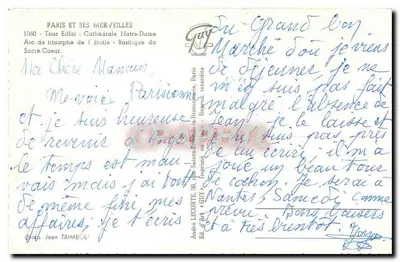 PARIS ET SES MERVEILLES
1060 - Tour Eiffel - Cathédrale Notre-Dame
Arc de triomphe de l'Etoile - Basilique du
Sacré Coeur.
Ma Chère Maman,
Me voici Parisienne
et je suis heureuse
de revenir à
le temps est mau-
vais mais j'ai tout
de même fini mes
affaires, je t'écris
Photo Jean TRIMBOLI
Guy
André LECONTE, 38, rue Paris
du Grand Bon
Marché d'où je viens
de déjeuner, je ne
m'en suis pas fait
malgré l'absence de
Jean, je le laisse et
suis pas près
de lui écrire, il m'a
joué un beau tour
de cochon. Je serai à
Nantes, Samedi comme
prévu. Bons baisers
et à très bientôt.